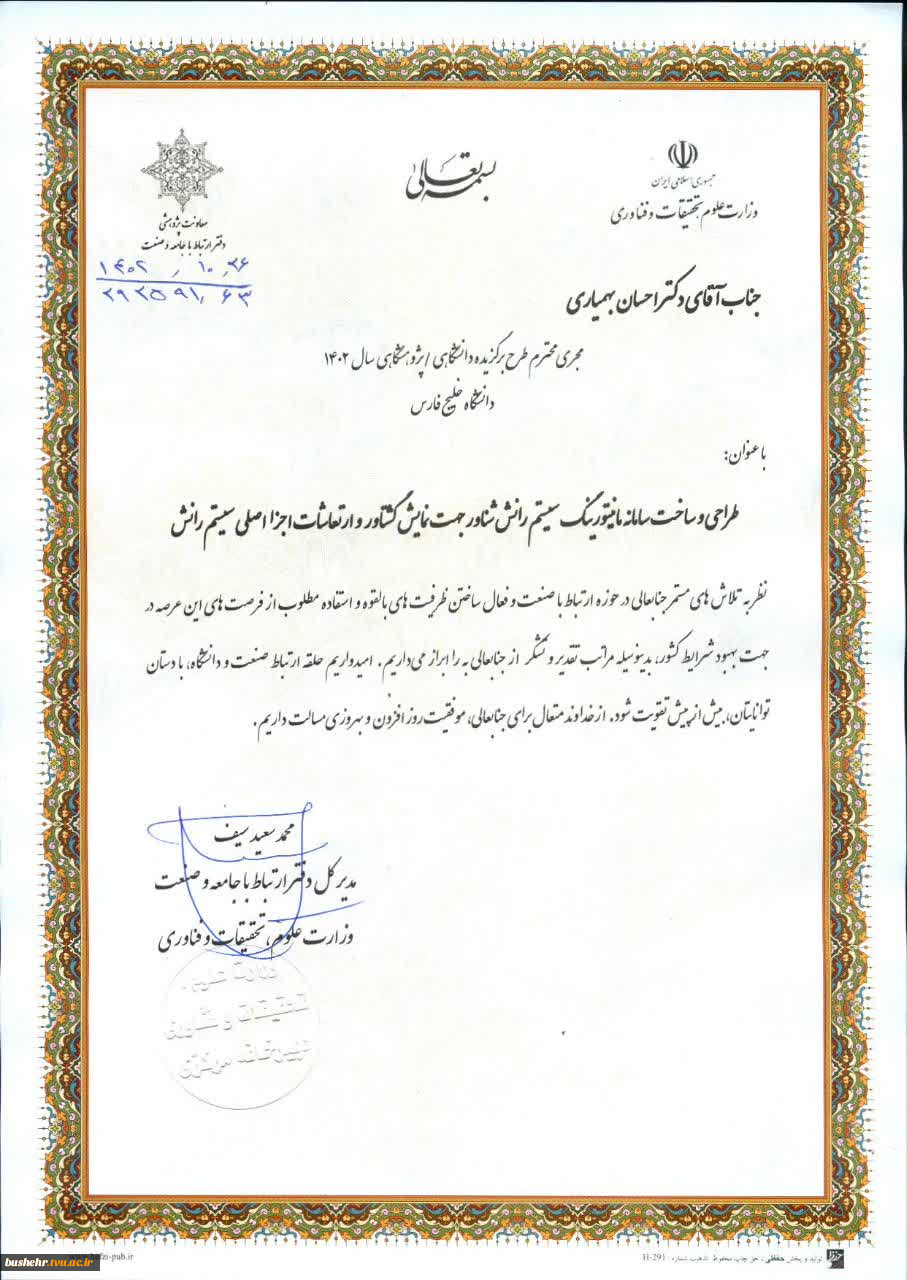 بسمه تعالی
جمهوری اسلامی ایران
وزارت علوم تحقیقات و فناوری
معاونت پژوهشی
دفتر ارتباط با جامعه و صنعت
۱۴۰۲ / ۱۰ / ۲۶
۲۹۲۵۹۱ / ۶۳
جناب آقای دکتر احسان بهمیاری
مجری محترم طرح برگزیده دانشگاهی / پژوهشگاهی سال ۱۴۰۲
دانشگاه خلیج فارس
با عنوان:
طراحی و ساخت سامانه مانیتورینگ سیستم رانش شناور جهت نمایش گشتاور و ارتعاشات اجزا اصلی سیستم رانش
نظر به تلاش های مستمر جنابعالی در حوزه ارتباط با صنعت و فعال ساختن ظرفیت های بالقوه و استفاده مطلوب از فرصت های این عرصه در
جهت بهبود شرایط کشور، بدینوسیله مراتب تقدیر و تشکر از جنابعالی به را ابراز می‌داریم. امیدواریم حلقه ارتباط صنعت و دانشگاه، با دستان
توانایتان، بیش از پیش تقویت شود. از خداوند متعال برای جنابعالی، موفقیت روز افزون و بهروزی مسالت داریم.
محمد سعید سیف
مدیر کل دفتر ارتباط با جامعه و صنعت
وزارت علوم، تحقیقات و فناوری
وزارت علوم،
تحقیقات و فناوری
دبیرخانه مرکزی
تولید و پخش حفظی، حق چاپ محفوظ. تذهیب شماره: H-291
bushehr.tvu.ac.ir